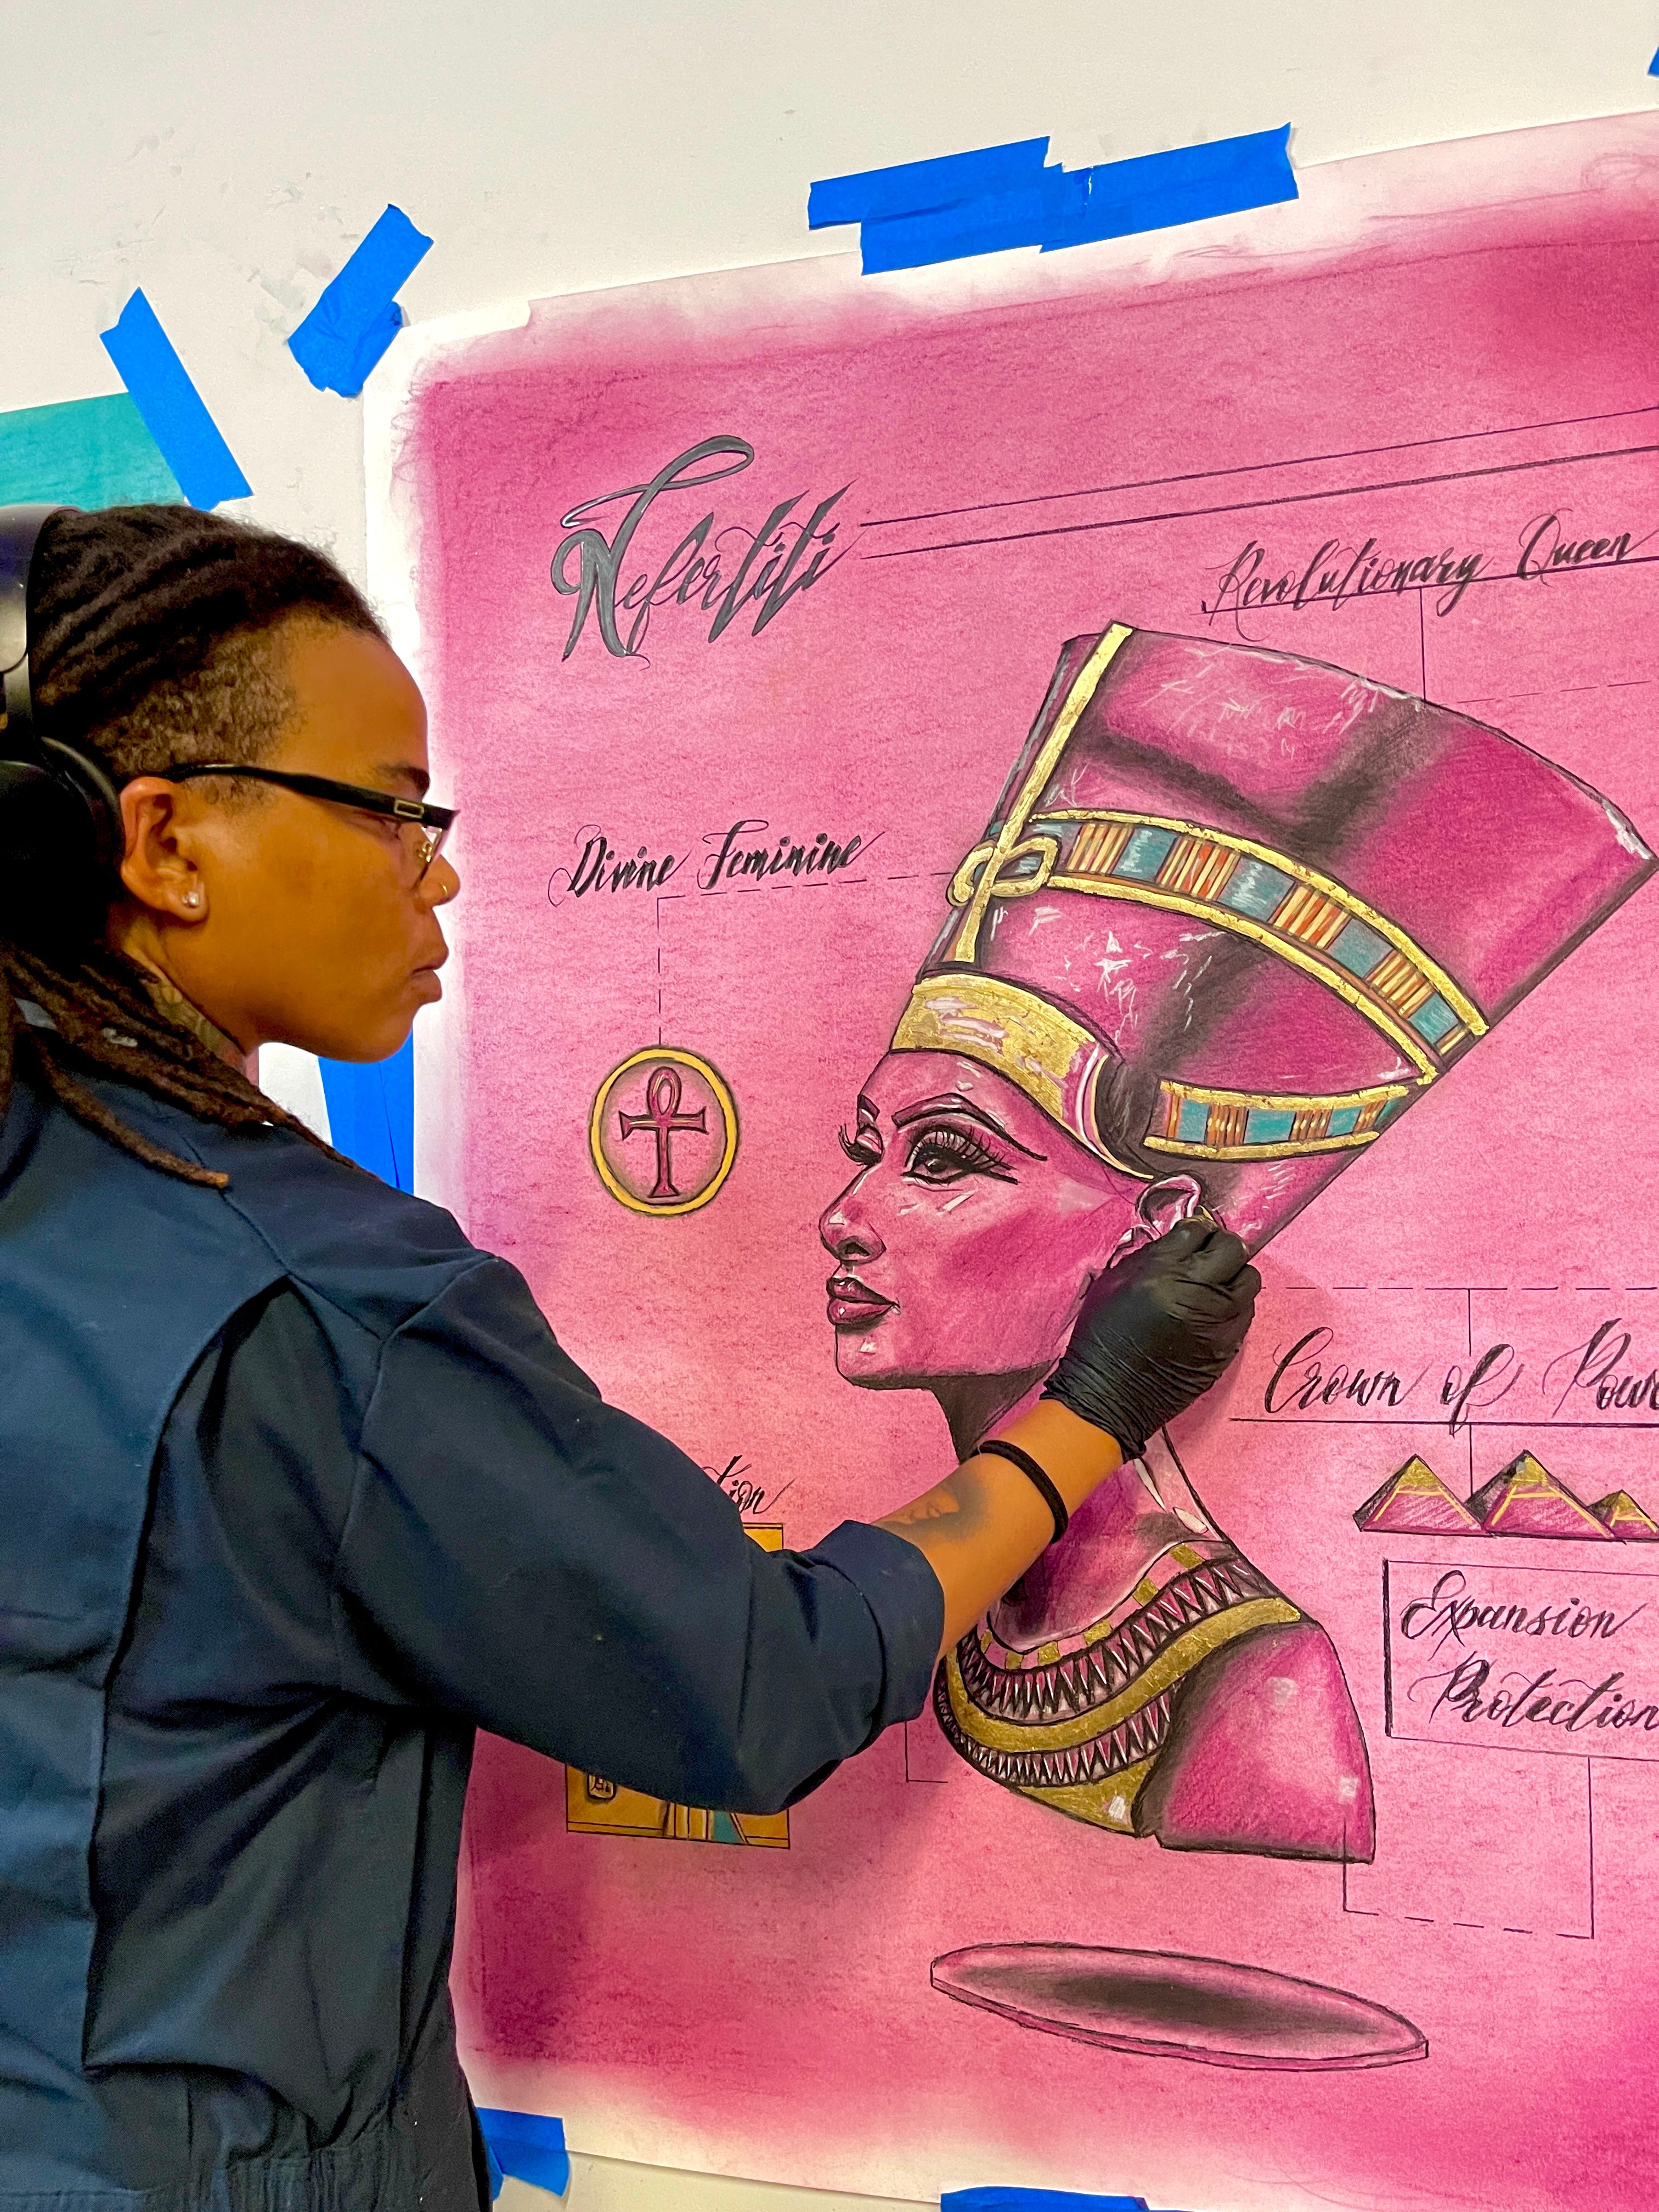 Nefertiti
Revolutionary Queen
Divine Feminine
Crown of
Expansion
Protection